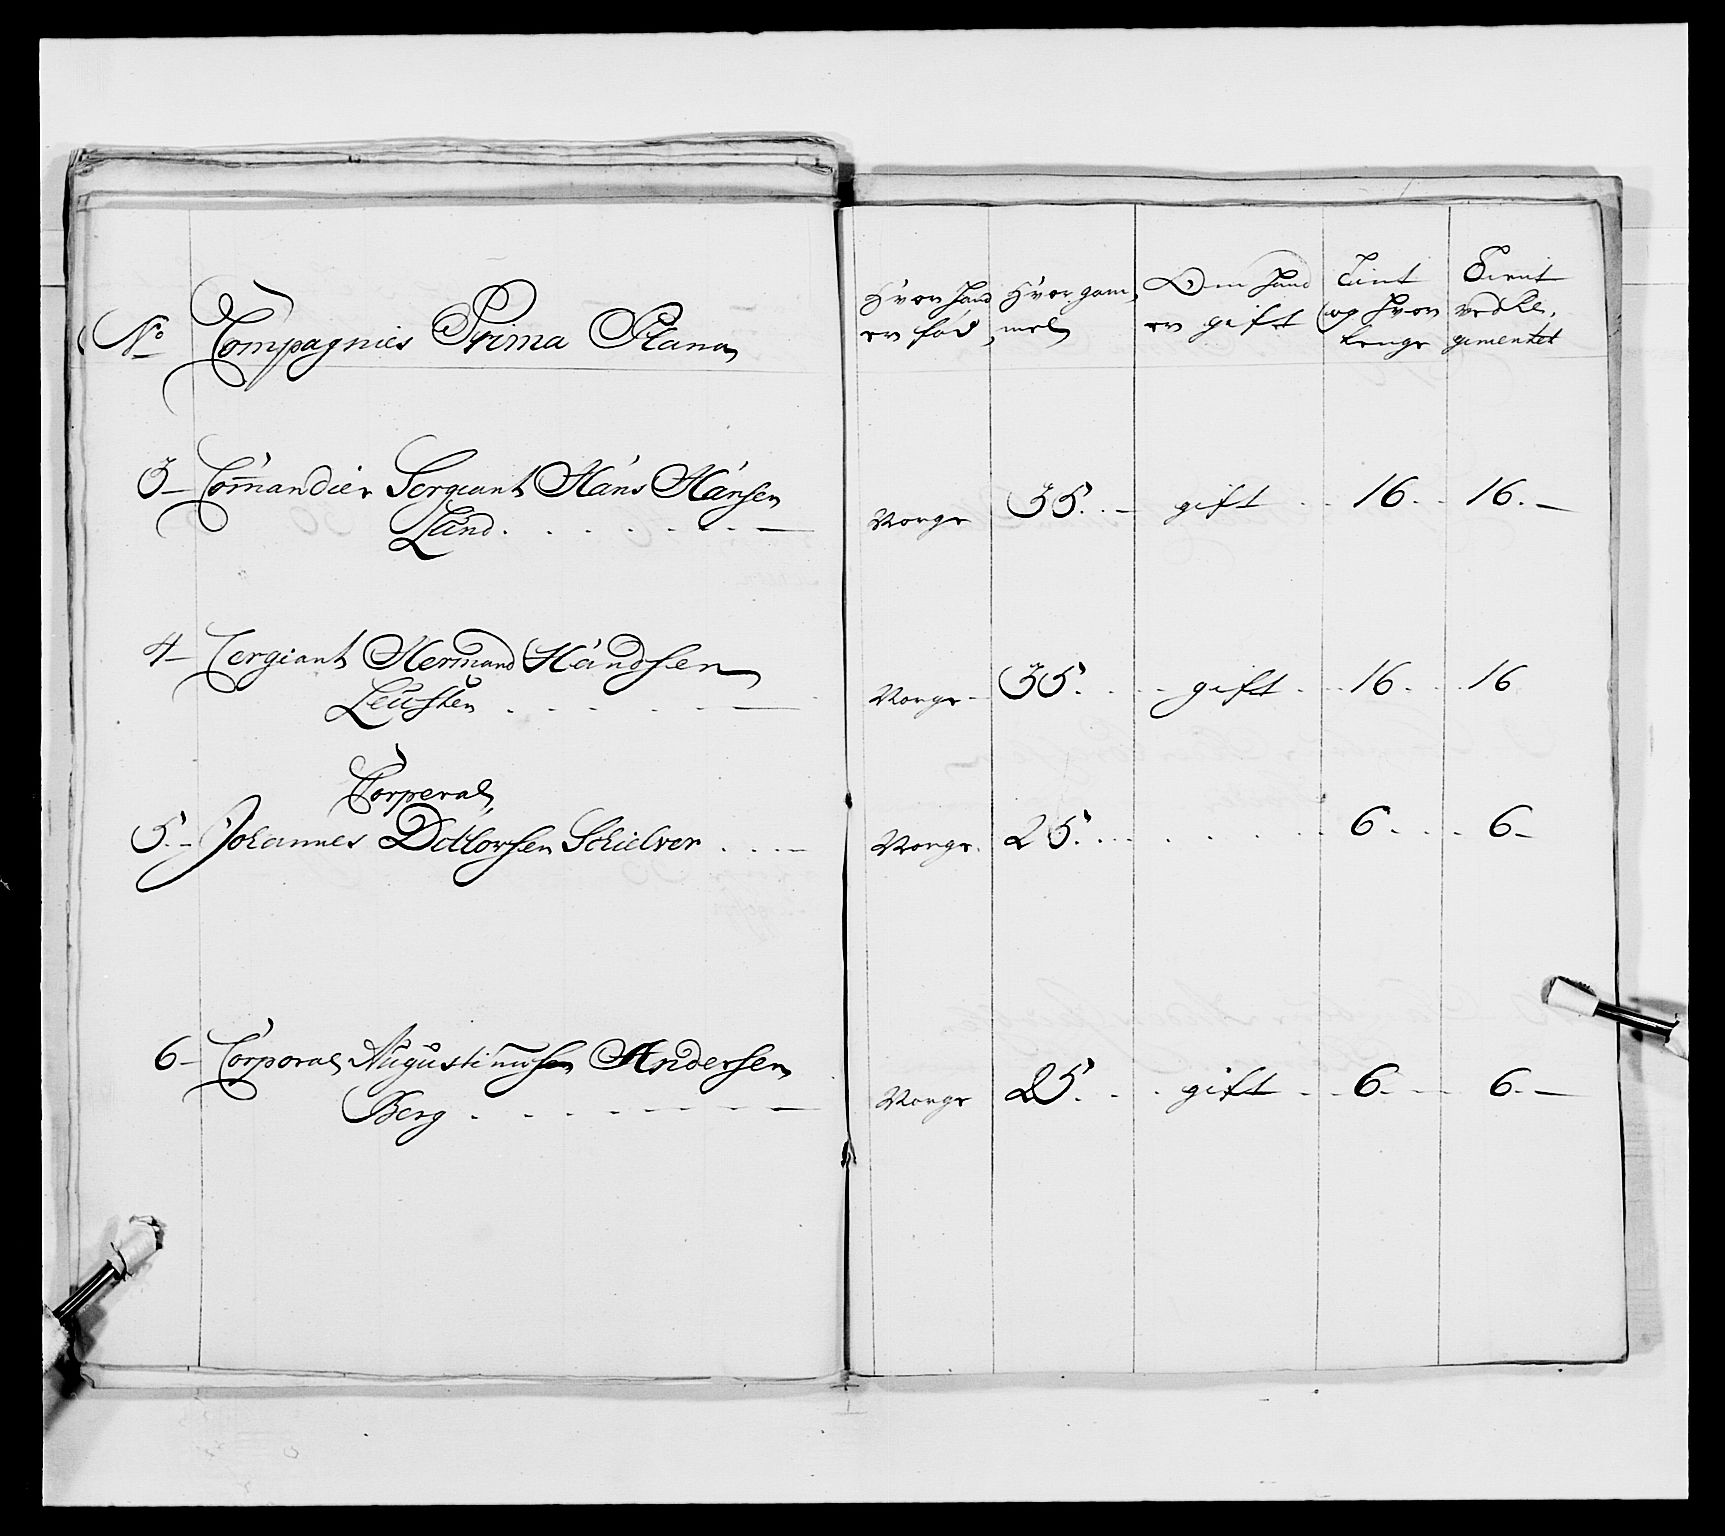 No Compagnies Prima Plana
Hvor hand er fød, Hvor gammel Om hand er gift Tient og hvor lenge Tient ved Regimentet
3 - Com̄andier Sergiant Hans Hansen
Lund . . . . . . - Norge 35. . - gift . . 16. . . 16. -
4 - Cergiant Hermand Handsen
Leusten . . . . . - Norge - 35. . . . gift . . . 16. . . . 16
Corperal,
5. - Johannes Schielver . . . - Norge. 25. . . . . . . . 6. . . . 6 -
6 - Corporal Augustinusen Andersen
Berg . . . . . . - Norge 25. . . . gift . . 6. . . . 6. -